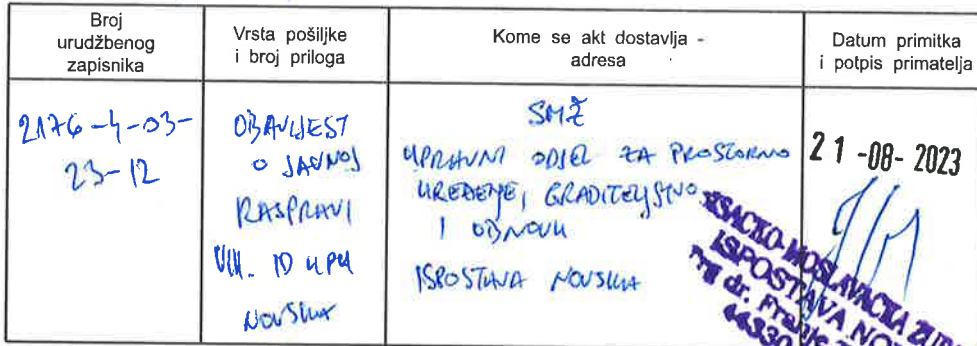 Broj
urudžbenog
zapisnika
Vrsta pošiljke
i broj priloga
Kome se akt dostavlja -
adresa
Datum primitka
i potpis primatelja
2176-4-03-
23-12
OBAVIJEST
O JAVNOJ
RASPRAVI
VIII. ID UPU
NOVSKA
SMŽ
UPRAVNI ODJEL ZA PROSTORNO
UREĐENJE, GRADITELJSTVO
I OBNOVU
ISPOSTAVA NOVSKA
21-08-2023
SAČKO-MOSLAVAČKA ŽUP
ISPOSTAVA NOV
Trg dr. Franje
44330